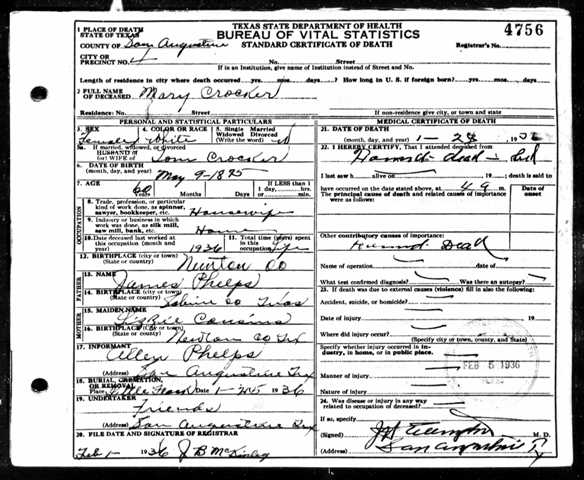 TEXAS STATE DEPARTMENT OF HEALTH
BUREAU OF VITAL STATISTICS
STANDARD CERTIFICATE OF DEATH
4756
Registrar's No.
1 PLACE OF DEATH
STATE OF TEXAS
COUNTY OF San Augustine
CITY OR
PRECINCT NO. 4 No. Street
If in an Institution, give name of Institution instead of Street and No.
Length of residence in city where death occurred yrs. mos. days. ? How long in U. S. if foreign born? yrs. mos. days
2 FULL NAME
OF DECEASED Mary Crocker
Residence: No. Street
If non-residence give city, or town and state
PERSONAL AND STATISTICAL PARTICULARS
3. SEX Female
4. COLOR OR RACE White
5. Single Married
Widowed Divorced
(Write the word)
5a. If married, widowed, or divorced
HUSBAND of
(or) WIFE of Tom Crocker
6. DATE OF BIRTH
(month, day, and year) May 9-1875
7. AGE
60 Months Days
If LESS than
1 day,
hrs.
or min.
OCCUPATION
8. Trade, profession, or particular
kind of work done, as spinner,
sawyer, bookkeeper, etc. Housewife
9. Industry or business in which
work was done, as silk mill,
saw mill, bank, etc. Home
10. Date deceased last worked at
this occupation (month and
year) 1936
11. Total time (years) spent
in this
occupation Life
12. BIRTHPLACE (city or town)
(State or country) Newton Co
FATHER
13. NAME James Phelps
14. BIRTHPLACE (city or town)
(State or country) Sabine Co Texas
MOTHER
15. MAIDEN NAME Cousins
16. BIRTHPLACE (city or town)
(State or country) Newton Co Tex
17. INFORMANT Allen Phelps
(Address) San Augustine Tex
18. BURIAL, CREMATION,
OR REMOVAL
Place Date 1-25 1936
19. UNDERTAKER Friends
(Address) San Augustine Tex
20. FILE DATE AND SIGNATURE OF REGISTRAR
Feb 1- 1936 J B McKinley
MEDICAL CERTIFICATE OF DEATH
21. DATE OF DEATH
(month, day, and year) 1- 24 1936
22. I HEREBY CERTIFY, That I attended deceased
from
I last saw h alive on 19 ; death is said to
have occurred on the date stated above, at 4 a m.
The principal cause of death and related causes of importance
were as follows:
Date of
onset
Other contributory causes of importance:
Found Dead
Name of operation date of
What test confirmed diagnosis? Was there an autopsy?
23. If death was due to external causes (violence) fill in also the following:
Accident, suicide, or homicide?
Date of injury 19
Where did injury occur?
(Specify city or town, county, and State)
Specify whether injury occurred in in-
dustry, in home, or in public place.
FEB 5 1936
Manner of injury
Nature of injury
24. Was disease or injury in any way
related to occupation of deceased?
If so, specify
(Signed) M. D.
(Address) San Augustine Tx